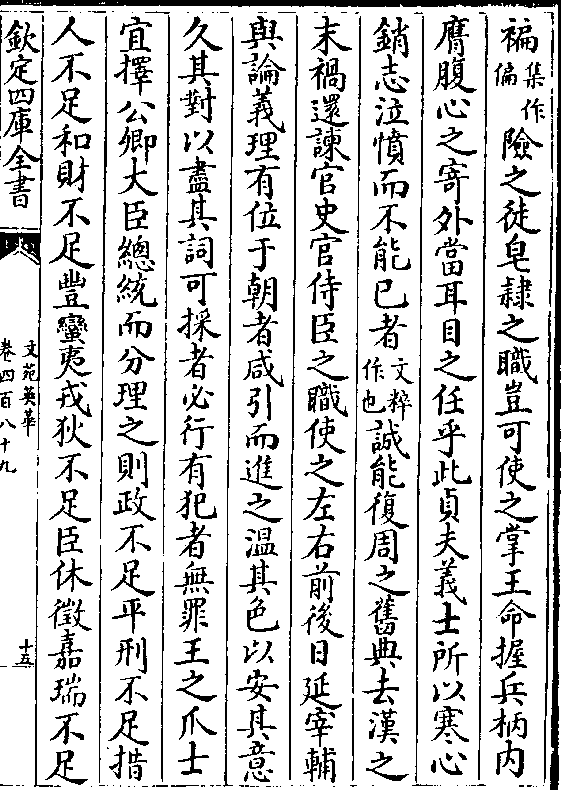 褊集作偏險之徒皁隷之職豈可使之掌王命握兵柄内
膺腹心之寄外當耳目之任乎此貞夫義士所以寒心
銷志泣憤而不能已者文粹作也誠能復周之舊典去漢之
末禍還諫官史官侍臣之職使之左右前後日延宰輔
與論義理有位于朝者咸引而進之温其色以安其意
久其對以盡其詞可採者必行有犯者無罪王之爪士
宜擇公卿大臣總統而分理之則政不足平刑不足措
人不足和財不足豐蠻夷戎狄不足臣休徵嘉瑞不足
欽定四庫全書
文苑英華
卷四百八十九
十五